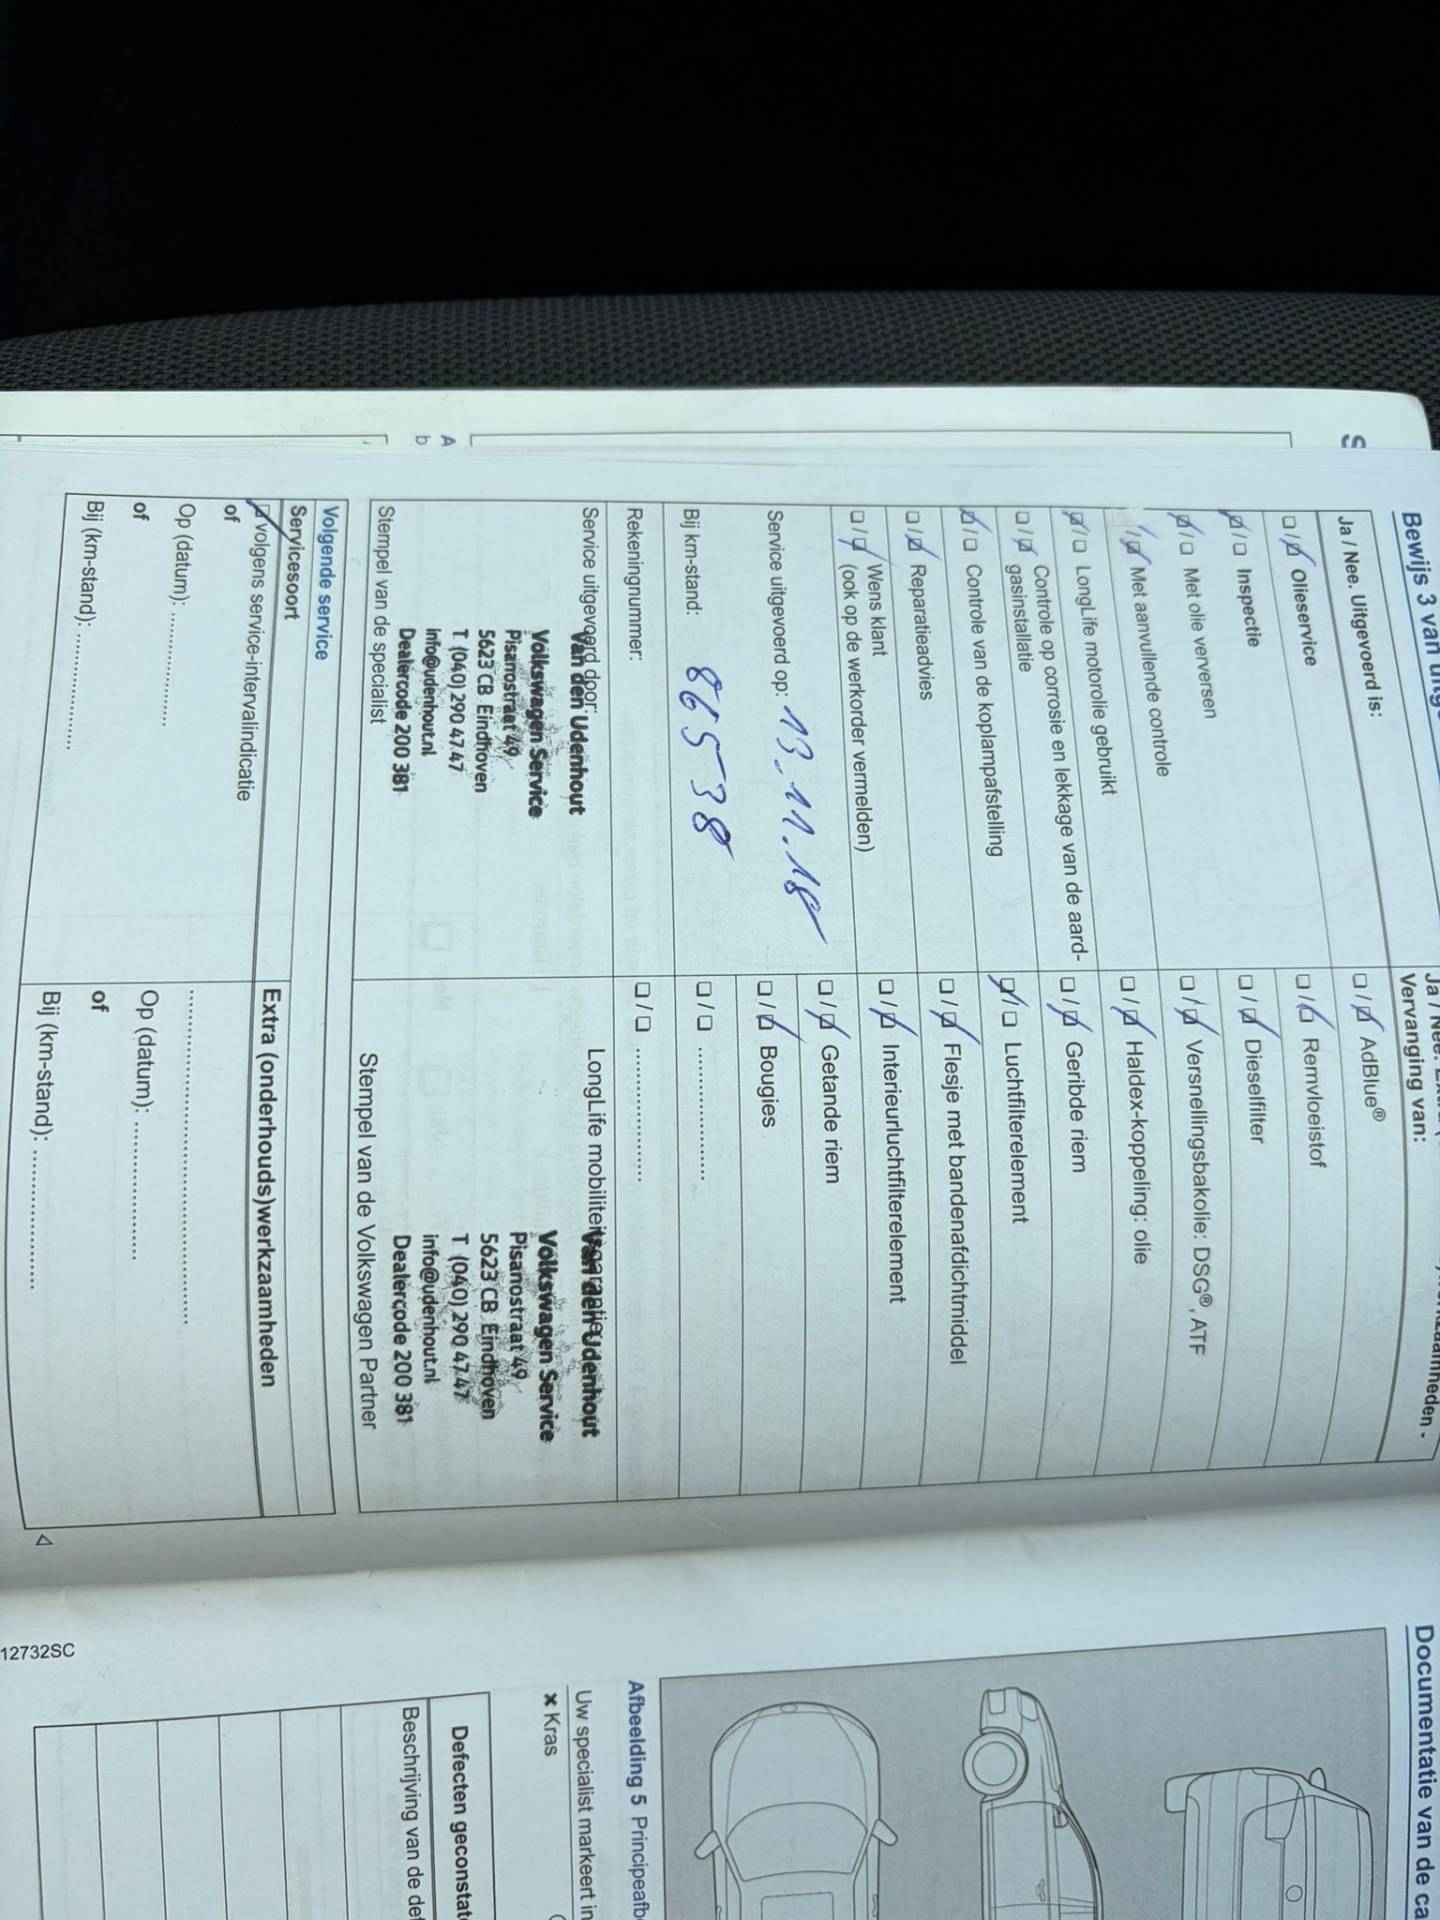 Bewijs 3 van uitge
Ja / Nee. Uitgevoerd is:
☐ / ☑ Olieservice
☑ / ☐ Inspectie
☑ / ☐ Met olie verversen
/ ☑ Met aanvullende controle
☑ / ☐ LongLife motorolie gebruikt
☐ / ☑ Controle op corrosie en lekkage van de aard-
gasinstallatie
☑ / ☐ Controle van de koplampafstelling
☐ / ☑ Reparatieadvies
☐ / ☑ Wens klant
(ook op de werkorder vermelden)
Service uitgevoerd op: 13.11.18
Bij km-stand: 86538
Rekeningnummer:
Service uitgevoerd door:
Van den Udenhout
Volkswagen Service
Pisanostraat 49
5623 CB Eindhoven
T (040) 290 47 47
info@udenhout.nl
Dealercode 200 381
Stempel van de specialist
werkzaamheden -
Vervanging van:
☐ / ☑ AdBlue®
☐ / ☑ Remvloeistof
☐ / ☑ Dieselfilter
☐ / ☑ Versnellingsbakolie: DSG®, ATF
☐ / ☑ Haldex-koppeling: olie
☐ / ☑ Geribde riem
☑ / ☐ Luchtfilterelement
☐ / ☑ Flesje met bandenafdichtmiddel
☐ / ☑ Interieurluchtfilterelement
☐ / ☑ Getande riem
☐ / ☑ Bougies
☐ / ☐ ....................
☐ / ☐ ....................
LongLife mobiliteitsgarantie:
Van den Udenhout
Volkswagen Service
Pisanostraat 49
5623 CB Eindhoven
T (040) 290 47 47
info@udenhout.nl
Dealercode 200 381
Stempel van de Volkswagen Partner
Volgende service
Servicesoort
☑ volgens service-intervalindicatie
of
Op (datum): ....................
of
Bij (km-stand): ....................
Extra (onderhouds)werkzaamheden
..............................
Op (datum): ....................
of
Bij (km-stand): ....................
12732SC
Documentatie van de ca
Afbeelding 5 Principeafb
Uw specialist markeert in
× Kras
Defecten geconstat
Beschrijving van de def
S
A
b